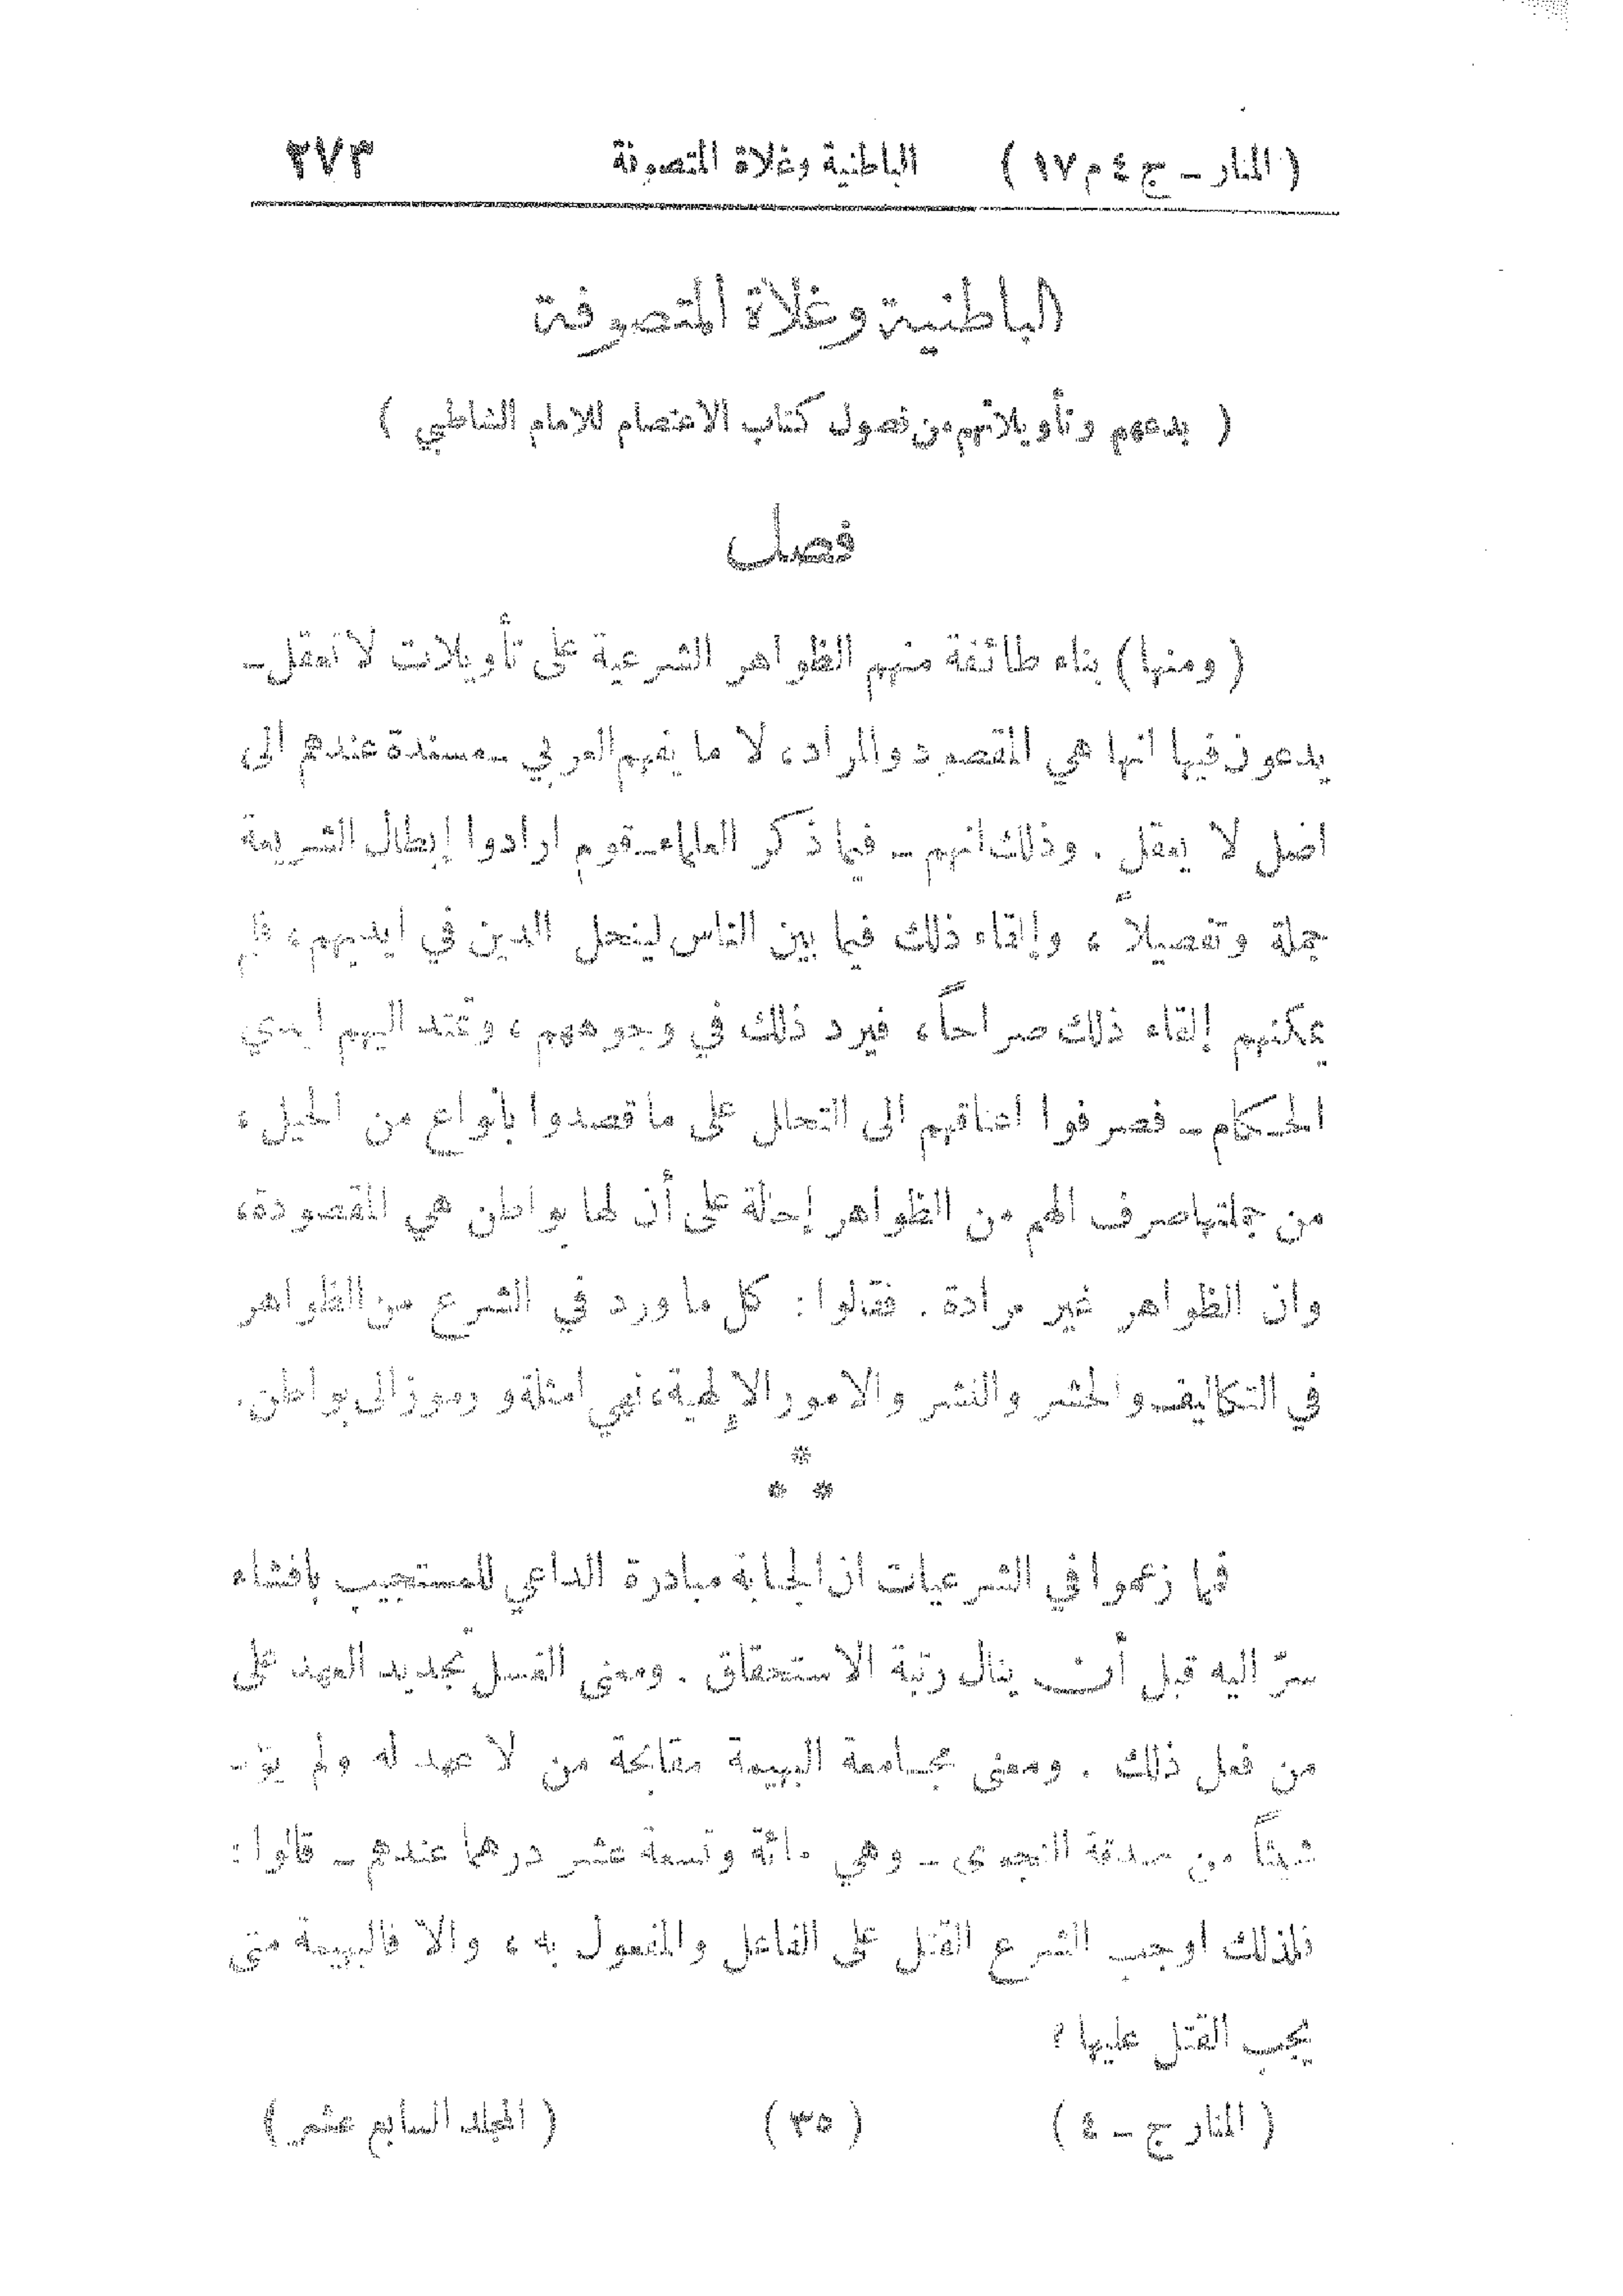 ( المنار ـ ج ٤ م ١٧ ) الباطنية وغلاة المتصوفة ٢٧٣
الباطنية وغلاة المتصوفة
( بدعهم وتأويلاتهم من فصول كتاب الاعتصام للامام الشاطبي )
فصل
( ومنها ) بناء طائفة منهم الظواهر الشرعية على تأويلات لا تعقل ـ
يدعون فيها انها هي المقصود والمراد، لا ما يفهم العربي ـ مسندة عندهم الى
اصل لا يعقل . وذلك انهم ـ فيما ذكر العلماء ـ قوم ارادوا إبطال الشريعة
جملة وتفصيلاً ، وإلقاء ذلك فيما بين الناس لينحل الدين في ايديهم ، فلم
يمكنهم إلقاء ذلك صراحاً، فيرد ذلك في وجوههم ، وتمتد اليهم ايدي
الحـكام ـ فصرفوا اعناقهم الى التحيل على ما قصدوا بأنواع من الحيل ،
من جملتها صرف الهم من الظواهر إحالة على أن لها بواطن هي المقصودة،
وان الظواهر غير مرادة . فقالوا : كل ما ورد في الشرع من الظواهر
في التكاليف والحشر والنشر والامور الإلهية، فهي امثلة ورموز الى بواطن.
*
* *
فما زعموا في الشرعيات ان الجنابة مبادرة الداعي للمستجيب بافشاء
سرّ اليه قبل أن ينال رتبة الاستحقاق . ومعنى الغسل تجديد العهد على
من فعل ذلك . ومعنى مجـامعة البهيمة مقابحة من لا عهد له ولم يؤد
شيئاً من صدقة النجوى ـ وهي مائة وتسعة عشر درهما عندهم ـ قالوا :
فلذلك اوجب الشرع القتل على الفاعل والمفعول به ، والا فالبهيمة متى
يجب القتل عليها ؟
( المنار ج ـ ٤ ) ( ٣٥ ) ( المجلد السابع عشر )